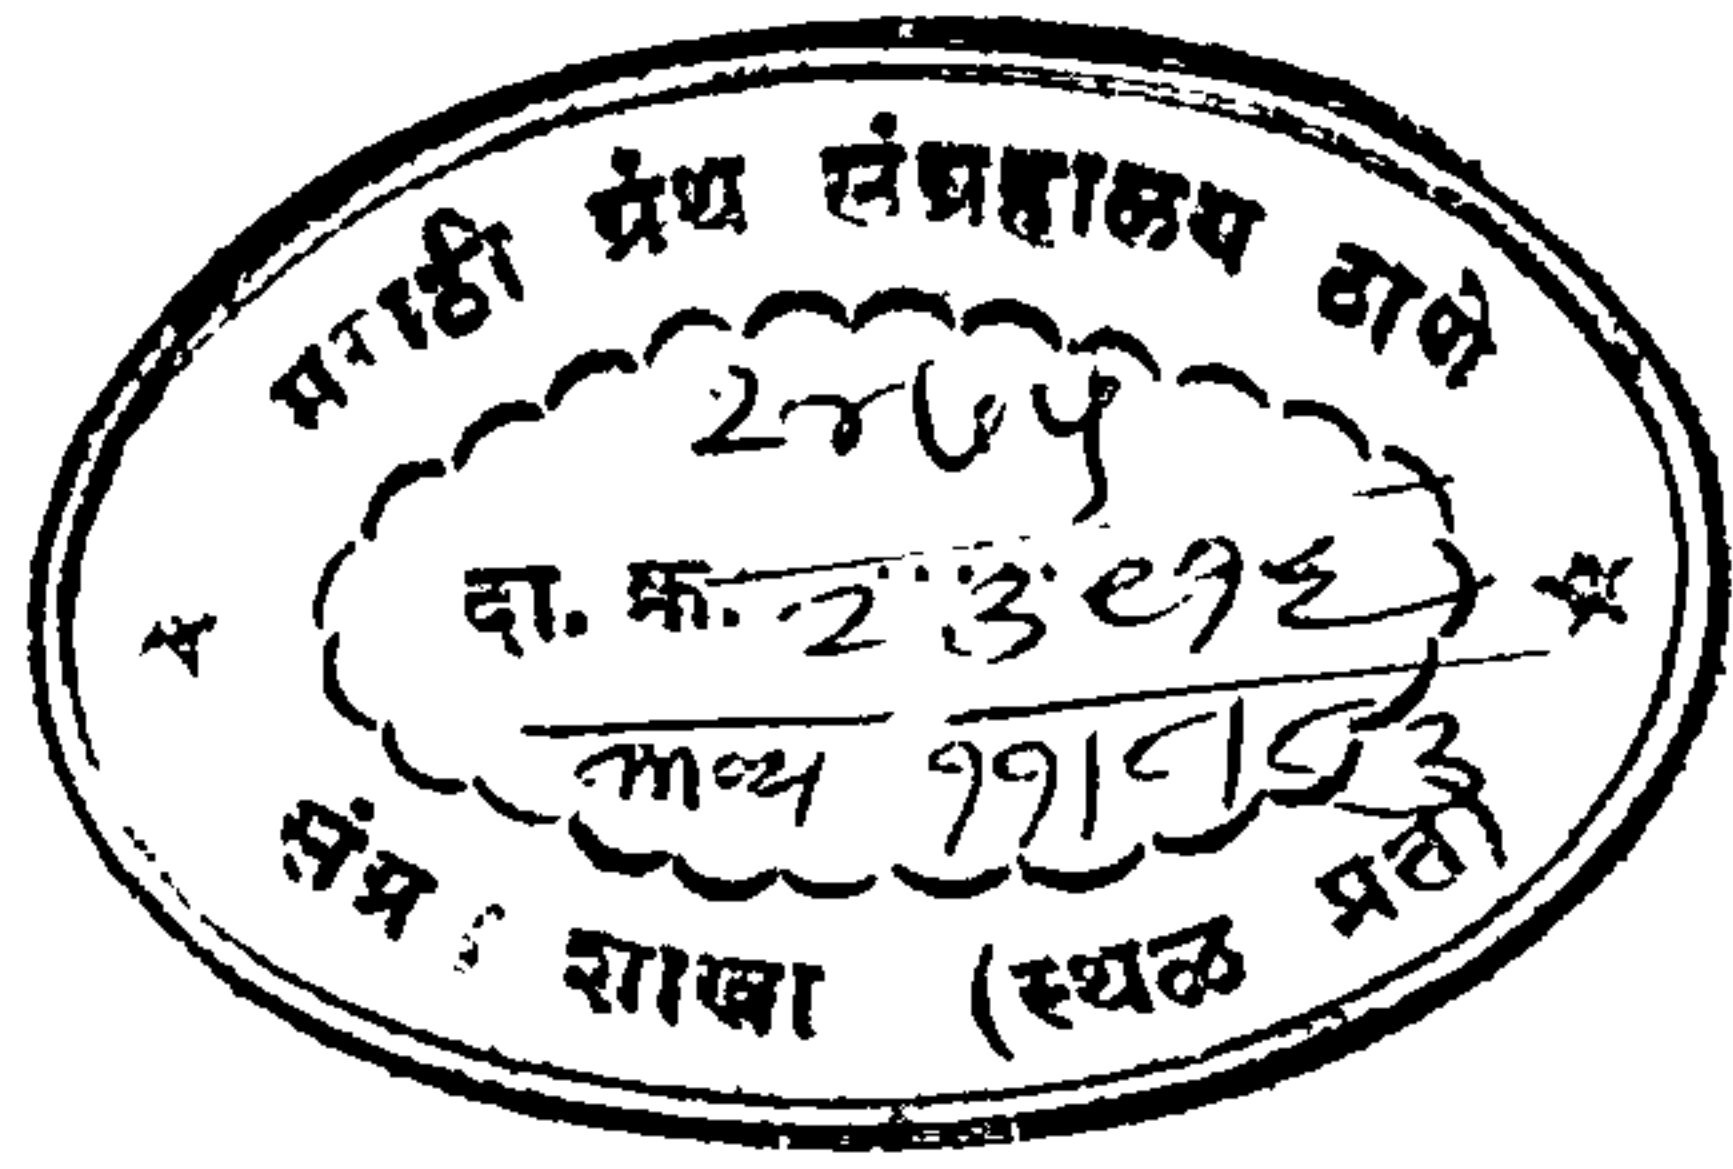 मराठी ग्रंथ संग्रहालय ठाणे
२४७५
दा. क्र. २३९१६
काव्य ११।८।८३
शाखा (स्थळ प्रती)